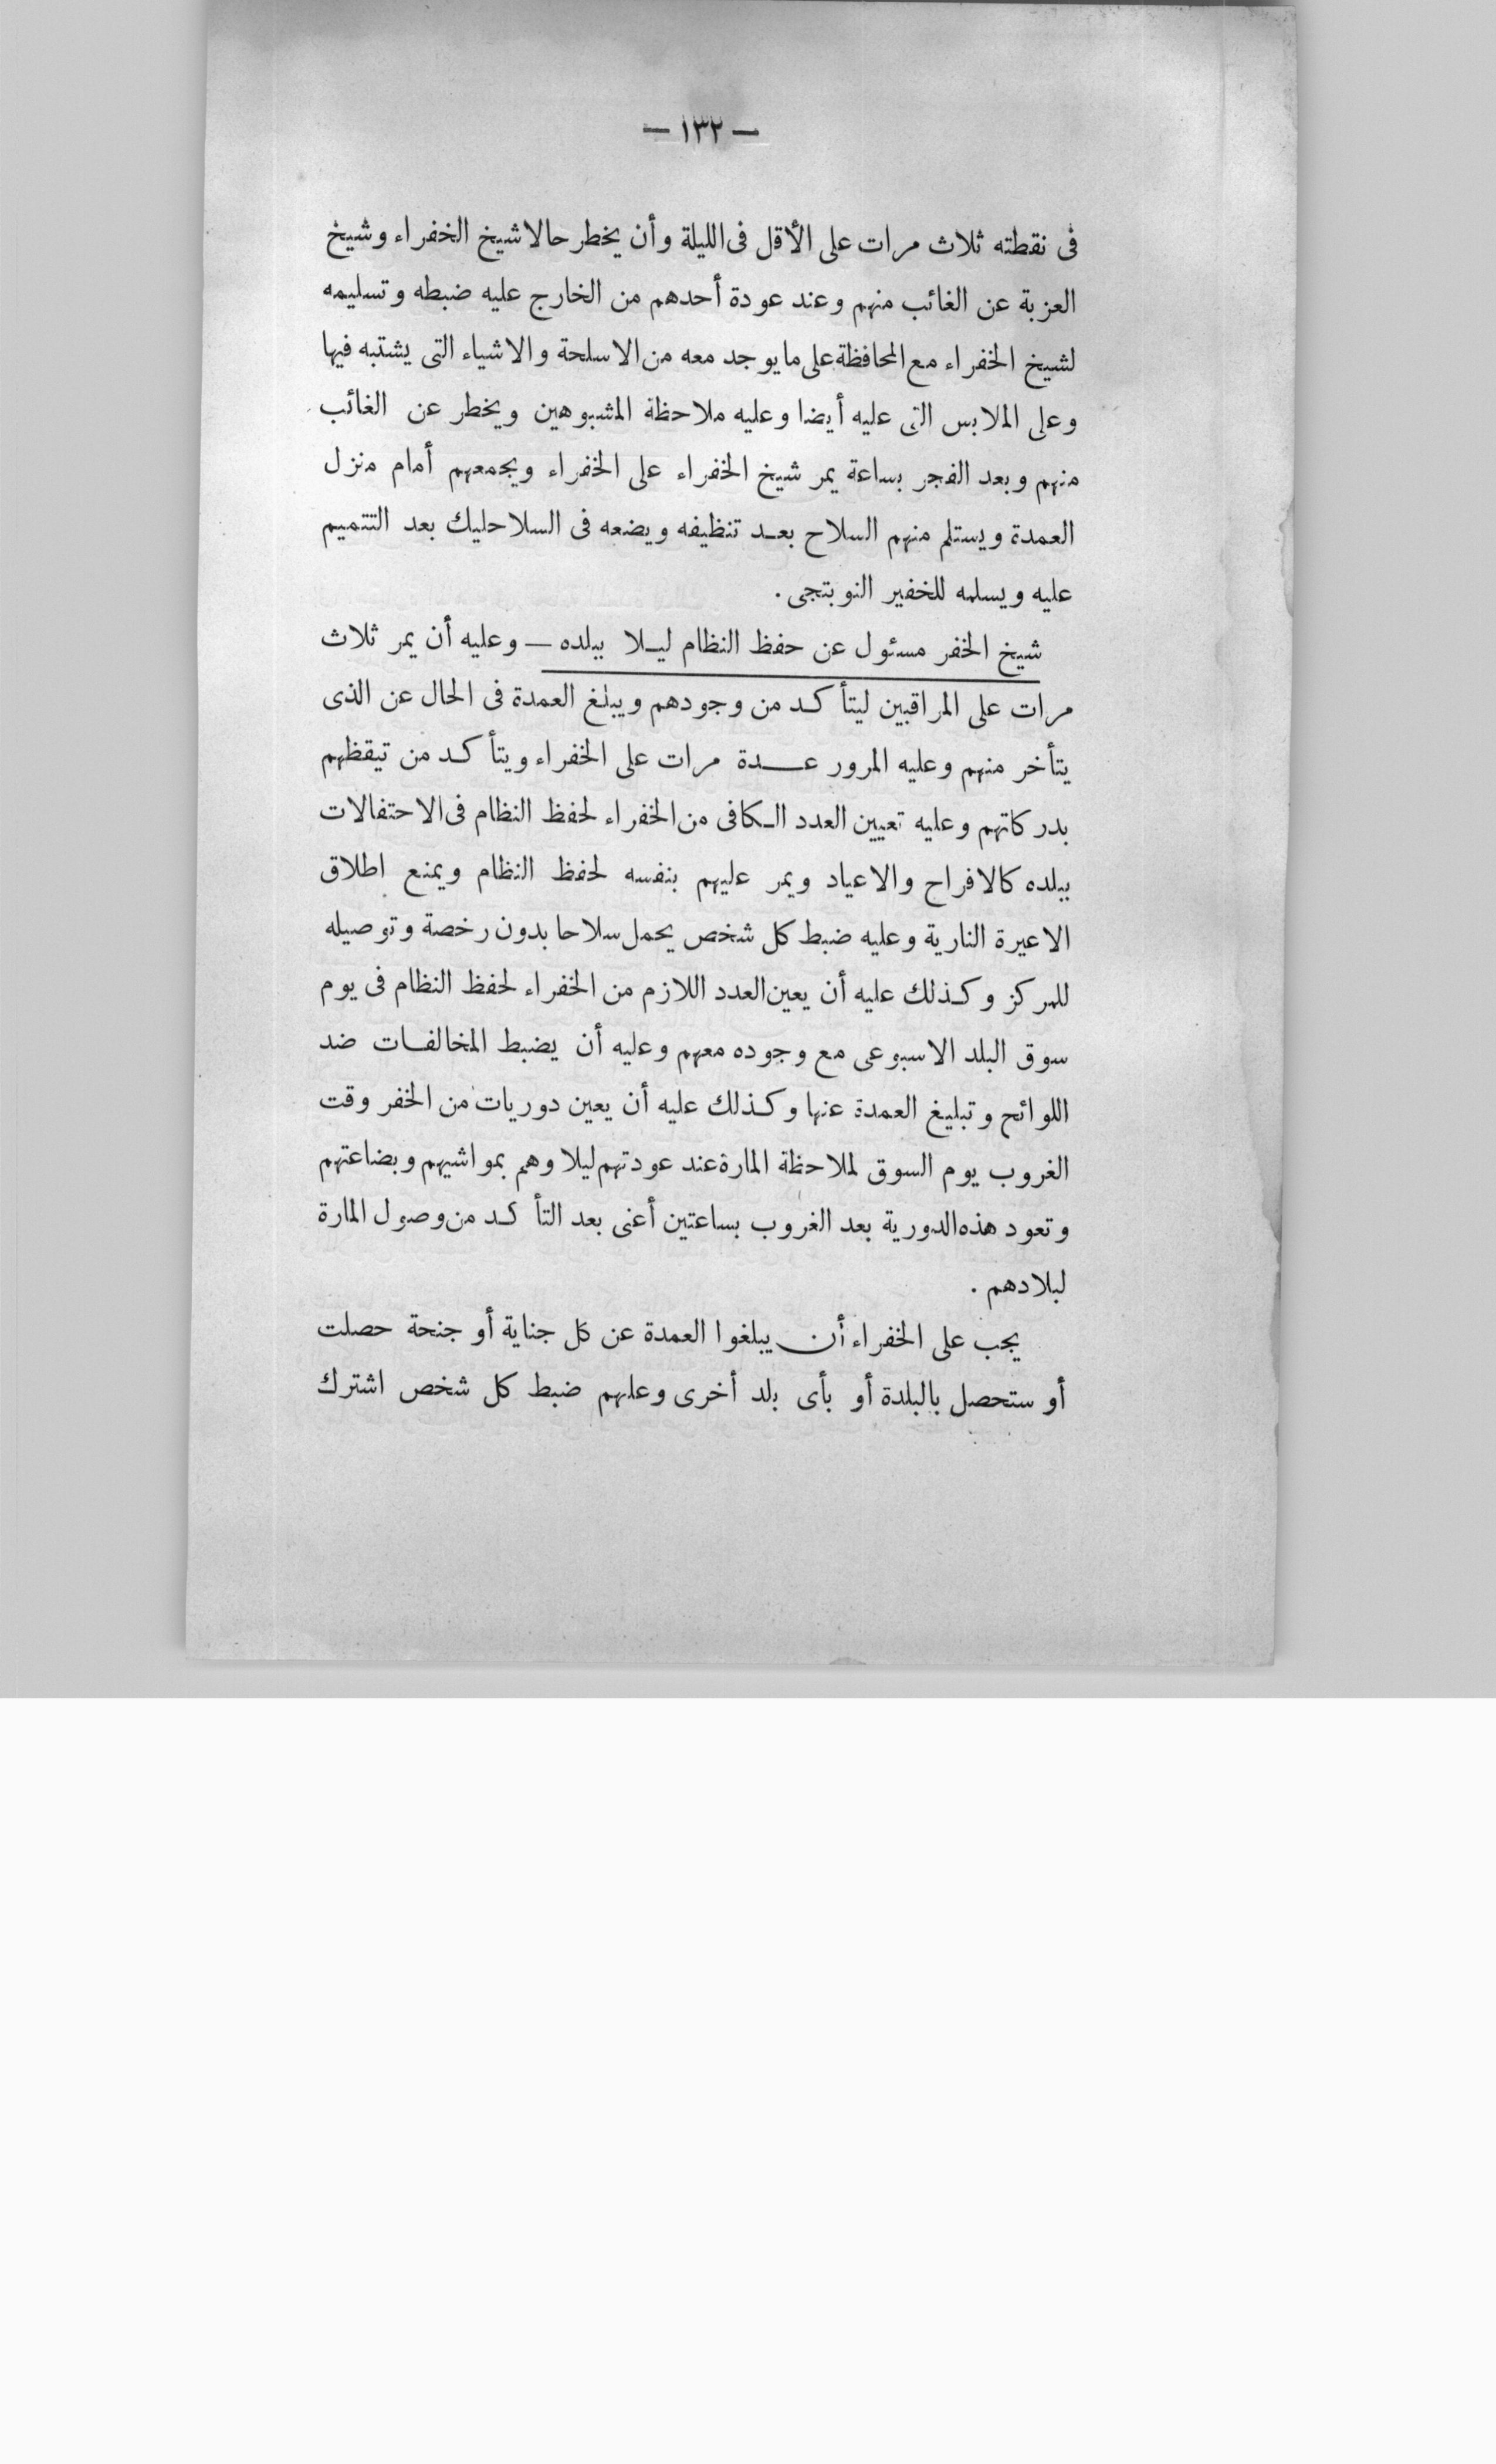 — ١٣٢ —
فى نقطته ثلاث مرات على الأقل فى الليلة وأن يخطر حالا شيخ الخفراء وشيخ
العزبة عن الغائب منهم وعند عودة أحدهم من الخارج عليه ضبطه وتسليمه
لشيخ الخفراء مع المحافظة على ما يوجد معه من الاسلحة والاشياء التى يشتبه فيها
وعلى الملابس التى عليه أيضا وعليه ملاحظة المشبوهين ويخطر عن الغائب
منهم وبعد الفجر بساعة يمر شيخ الخفراء على الخفراء ويجمعهم أمام منزل
العمدة ويستلم منهم السلاح بعد تنظيفه ويضعه فى السلاحليك بعد التتميم
عليه ويسلمه للخفير النوبتجى .
شيخ الخفر مسئول عن حفظ النظام ليلا ببلده — وعليه أن يمر ثلاث
مرات على المراقبين ليتأكد من وجودهم ويبلغ العمدة فى الحال عن الذى
يتأخر منهم وعليه المرور عدة مرات على الخفراء ويتأكد من تيقظهم
بدركاتهم وعليه تعيين العدد الكافى من الخفراء لحفظ النظام فى الاحتفالات
ببلده كالافراح والاعياد ويمر عليهم بنفسه لحفظ النظام ويمنع اطلاق
الاعيرة النارية وعليه ضبط كل شخص يحمل سلاحا بدون رخصة وتوصيله
للمركز وكذلك عليه أن يعين العدد اللازم من الخفراء لحفظ النظام فى يوم
سوق البلد الاسبوعى مع وجوده معهم وعليه أن يضبط المخالفات ضد
اللوائح وتبليغ العمدة عنها وكذلك عليه أن يعين دوريات من الخفر وقت
الغروب يوم السوق لملاحظة المارة عند عودتهم ليلا وهم بمواشيهم وبضاعتهم
وتعود هذه الدورية بعد الغروب بساعتين أعنى بعد التأكد من وصول المارة
لبلادهم .
يجب على الخفراء أن يبلغوا العمدة عن كل جناية أو جنحة حصلت
أو ستحصل بالبلدة أو بأى بلد أخرى وعليهم ضبط كل شخص اشترك